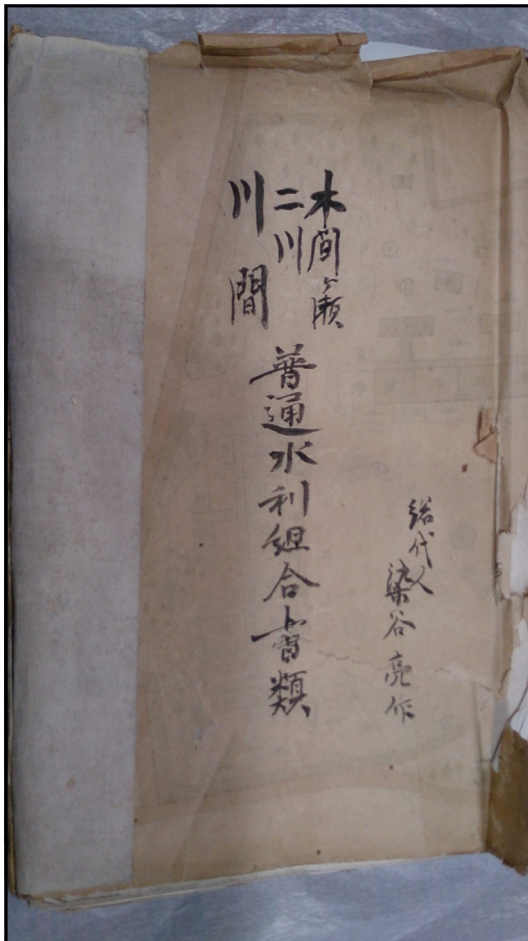 総代人
染谷亮作
木間ヶ瀬
二川
川間
普通水利組合書類